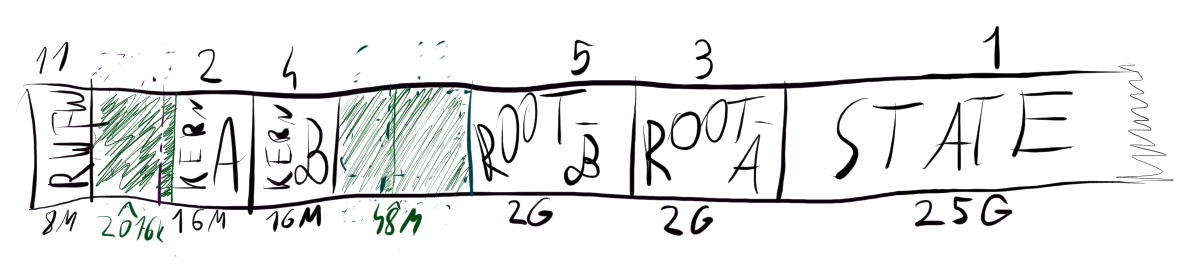 11 2 4 5 3 1
RWFW KERN A KERN B ROOT-B ROOT-A STATE
8M 16M 16M 48M 2G 2G 25G